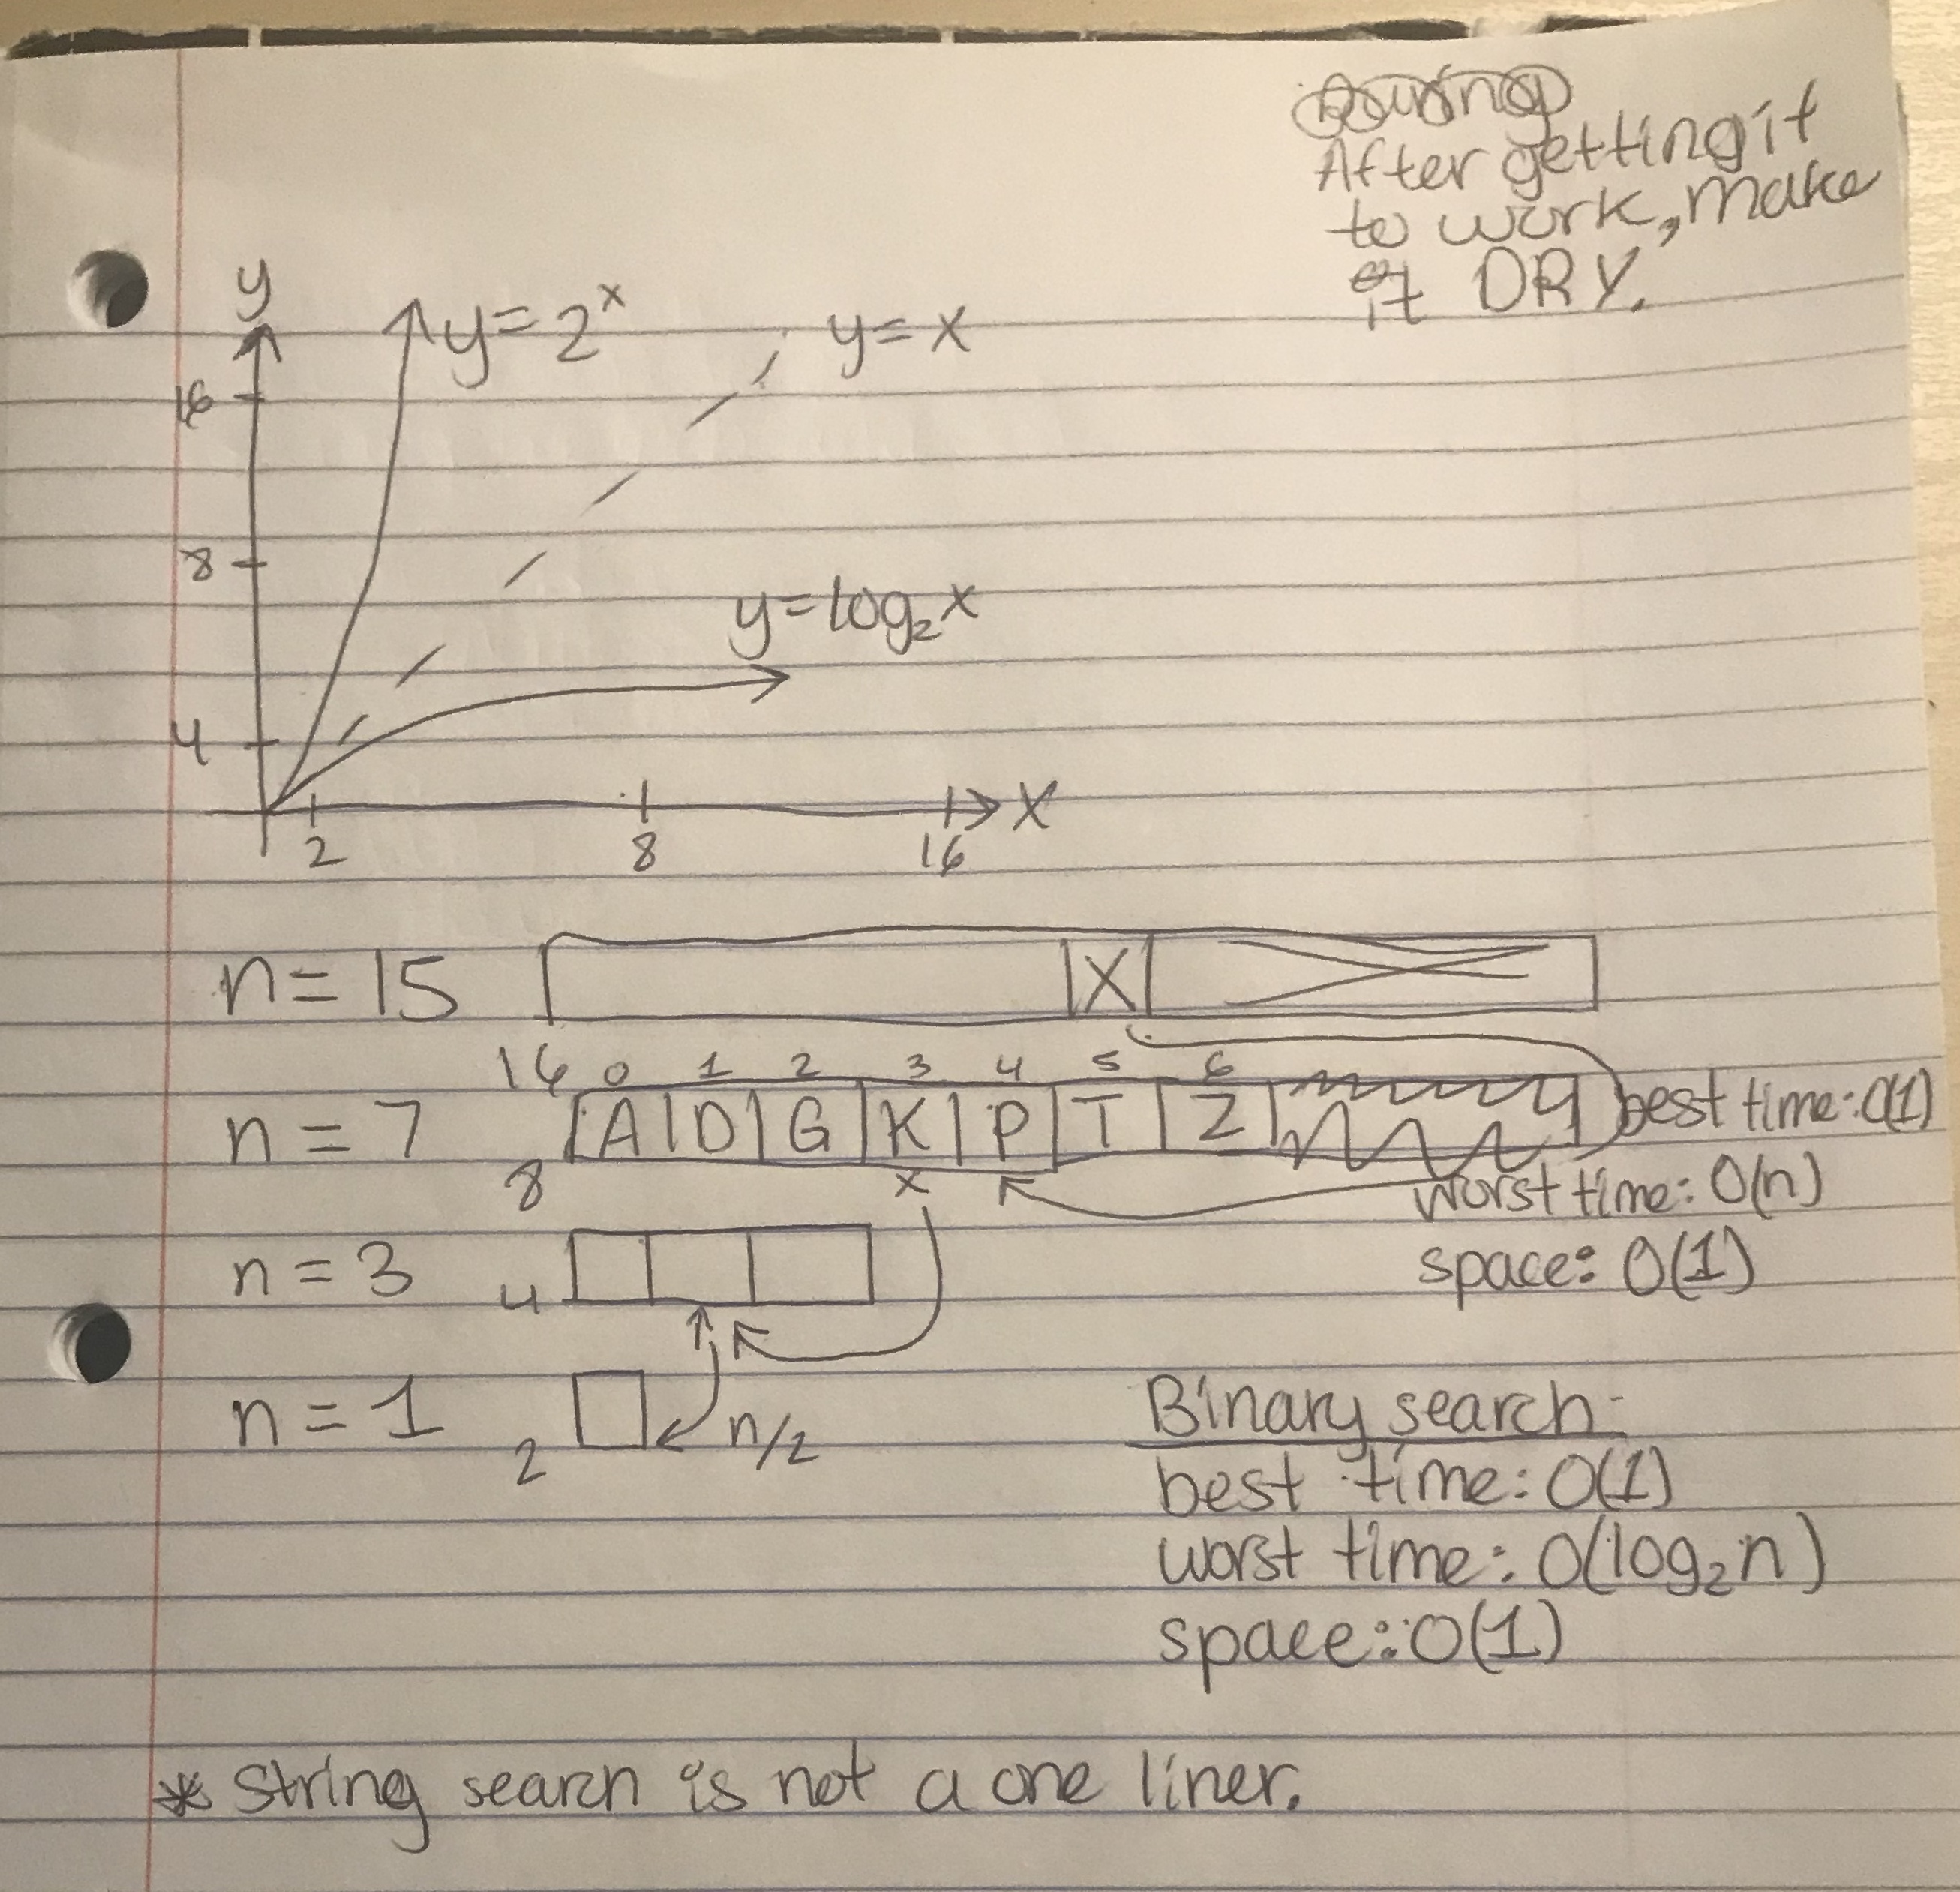 After getting it
to work, make
it DRY.
y
y=2ˣ
y=x
16
8
y=log₂x
4
x
2 8 16
n=15 X
16 0 1 2 3 4 5 6
n=7 A D G K P T Z best time: O(1)
8 x worst time: O(n)
n=3 4 space: O(1)
n=1 2 n/2
Binary search:
best time: O(1)
worst time: O(log₂n)
space: O(1)
* String search is not a one liner.